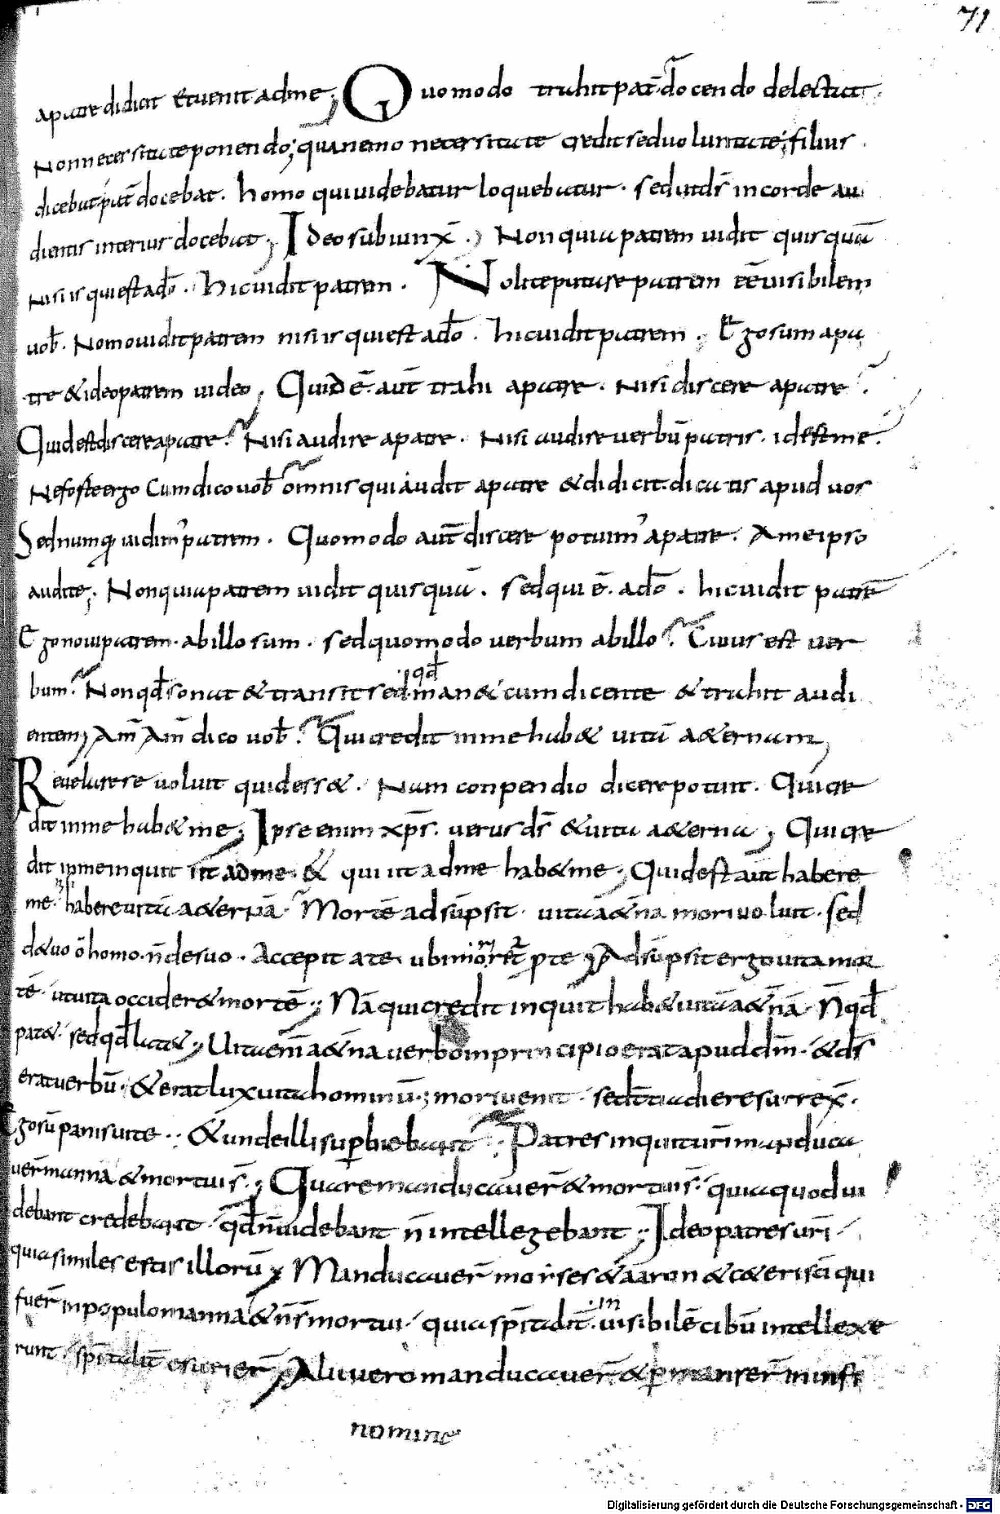 71
apatre didicit & uenit adme; Quomodo trahit pat̄ docendo delectat.
Non necessitate ponendo; quia nemo necessitate credit sed uoluntate; filius
dicebat pat̄ docebat. homo qui uidebatur loquebatur. sed ut d̄s in corde au
dientis interius docebat; Ideo subiunx̄; Non quia patrem uidit quisquā
nisi is qui est ado. hic uidit patrem. Nolite putare patrem eē uisibilem
uob. Nemo uidit patrem nisi is qui est ado. hic uidit patrem. Ego sum apa
tre & ideo patrem uideo; Quid ē aut̄ trahi apatre. Nisi discere apatre?
Quid est discere apatre? Nisi audire apatre. Nisi audire uerbū patris. id est me.
Ne forte ergo cum dico uob omnis qui audit apatre & didicit. dicatis apud uos
Sed numq̄ uidim' patrem. Quomodo aut̄ discere potuim' apatre. A me ipso
audite; Non quia patrem uidit quisquā. sed qui ē ado. hic uidit patrē
Ego noui patrem. ab illo sum. sed quomodo uerbum ab illo? Cuius est uer
bum? Non qd sonat & transit sed qd man& cum dicente & trahit audi
entem; Am̄ Am̄ dico uob? Qui credit in me hab& uitā a&ernam;
Reuelare se uoluit quid ess&. Nam conpendio dicere potuit. Qui cre
dit in me hab& me; Ipse enim xp̄s uerus d̄s & uita a&erna; Qui cre
dit in me inquit it adme. & qui it adme hab& me; Quid est aut̄ habere
me. nisi habere uitā a&ernā? Mortē adsūpsit uita a&na mori uoluit. sed
de tuo ō homo. n̄ de suo. Accepit a te ubi moreret' p te; Adsūpsit ergo uita mor
tē. ut uita occider& mortē; Nā qui credit inquit hab& uitā a&nā. N̄ qd
pat&. sed qd lat&; Uita em̄ a&na uerbo in principio erat apud dm̄. & d̄s
erat uerbū. & erat lux uita hominū; mori uenit. sed t̄tia die resurrex̄.
Ego sū panis uite.. & unde illi supbiebant? Patres inquit ur̄i manduca
uer̄ manna & mortui s̄; Quare manducauer̄ & mortui s̄. quia quod ui
debant credebant. qd n̄ uidebant n̄ intellegebant; Ideo patres ur̄i
quia similes estis illorū; Manducauer̄ moises & aaron & c&eri sc̄i qui
fuer̄ in populo manna & n̄ s̄ mortui. quia sp̄italit. inuisibilē cibū intellexe
runt. sp̄italit esurier̄; Alii uero manducauer̄ & pmanser̄ in infi
nomine
Digitalisierung gefördert durch die Deutsche Forschungsgemeinschaft - DFG